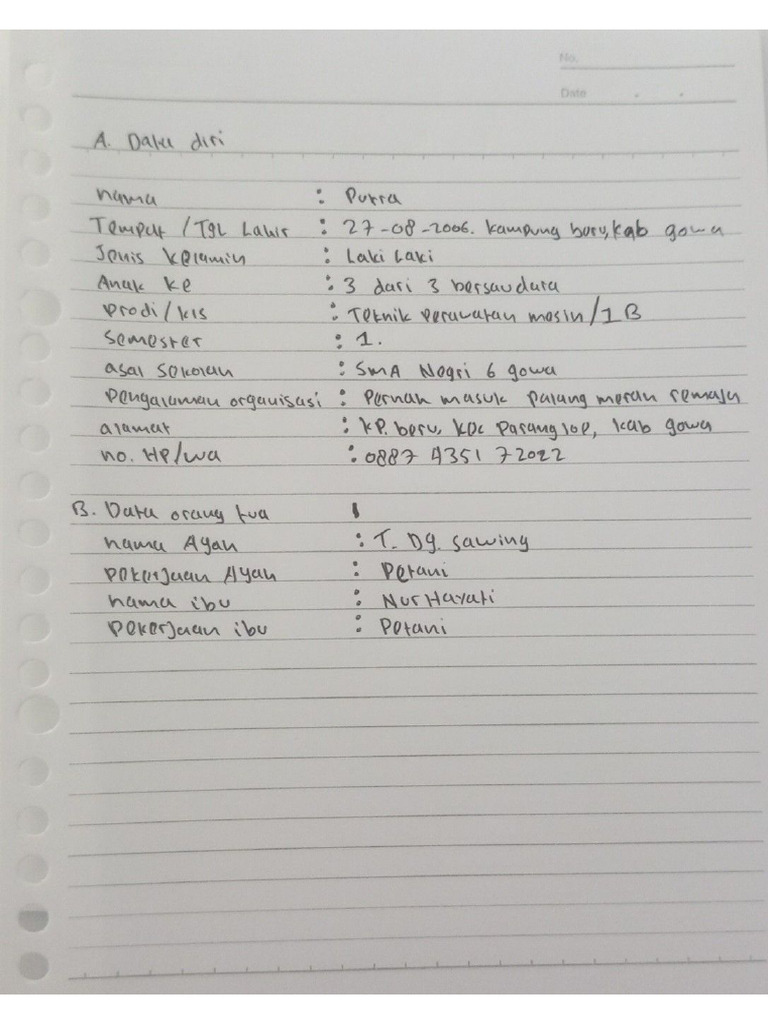 No.
Date
A. Data diri
nama : Putra
Tempat / Tgl Lahir : 27-08-2006. Kampung beru, kab gowa
Jenis kelamin : Laki Laki
Anak ke : 3 dari 3 bersaudara
Prodi / kls : Teknik Perawatan mesin / 1 B
Semester : 1.
asal sekolah : SMA Negri 6 gowa
Pengalaman organisasi : Pernah masuk palang merah remaja
alamat : KP. beru, kec Parangloe, kab gowa
no. HP/wa : 0887 4351 72022
B. Data orang tua
nama Ayah : T. Dg. Sawing
Pekerjaan Ayah : Petani
nama ibu : Nur Hayati
Pekerjaan ibu : Petani